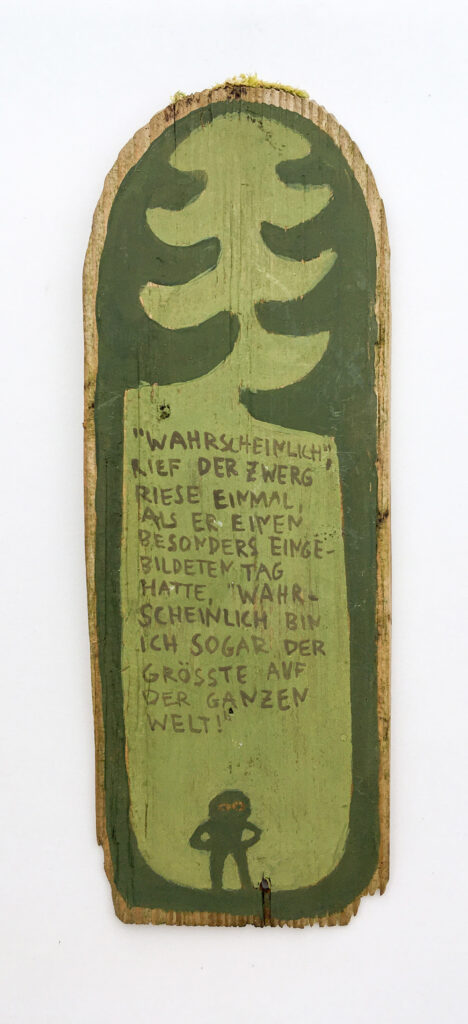 "WAHRSCHEINLICH",
RIEF DER ZWERG
RIESE EINMAL,
ALS ER EINEN
BESONDERS EINGE-
BILDETEN TAG
HATTE, "WAHR-
SCHEINLICH BIN
ICH SOGAR DER
GRÖSSTE AUF
DER GANZEN
WELT!"